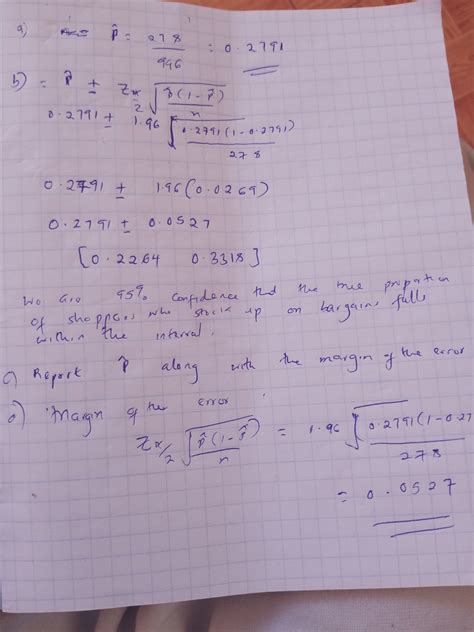 a) p̂ = 278/996 = 0.2791
b) = p̂ ± Zα/2 √(p̂(1-p̂)/n)
0.2791 ± 1.96 √(0.2791(1-0.2791)/278)
0.2791 ± 1.96(0.0269)
0.2791 ± 0.0527
[0.2264 0.3318]
95% confidence that the true
of shoppers who stock up on bargains falls
within the interval.
c) Report p̂ along with the margin of the error
d) Margin of the error
Zα/2 √(p̂(1-p̂)/n) = 1.96 √(0.2791(1-0.27/278
= 0.0527